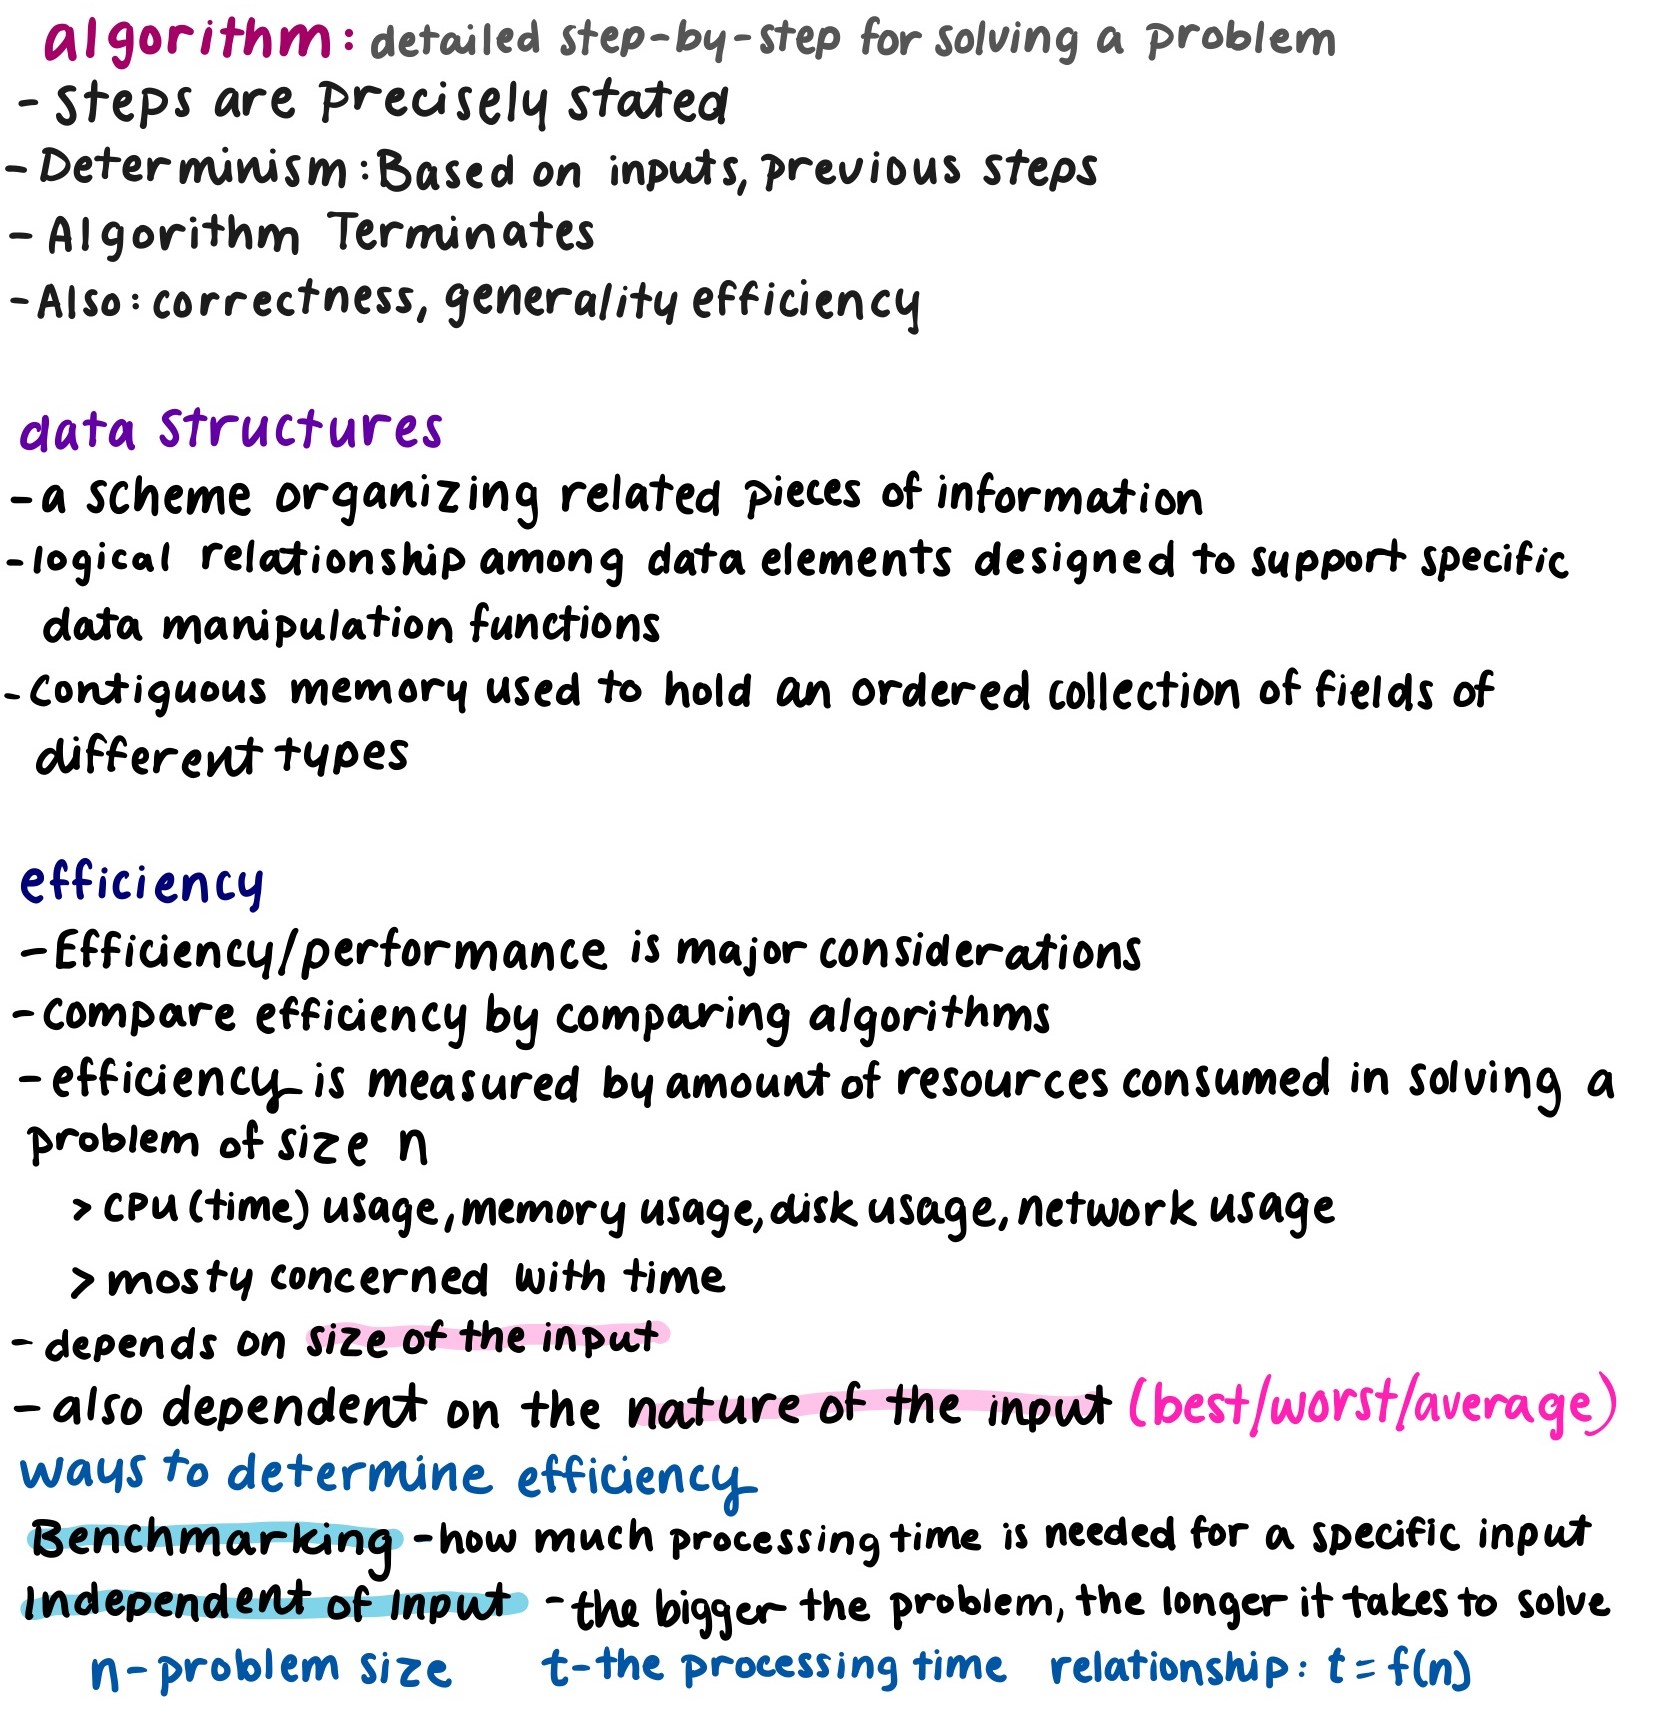 algorithm: detailed step-by-step for solving a problem
- steps are precisely stated
- Determinism: Based on inputs, previous steps
- Algorithm Terminates
- Also: correctness, generality efficiency
data structures
- a scheme organizing related pieces of information
- logical relationship among data elements designed to support specific
data manipulation functions
- Contiguous memory used to hold an ordered collection of fields of
different types
efficiency
- Efficiency/performance is major considerations
- compare efficiency by comparing algorithms
- efficiency is measured by amount of resources consumed in solving a
problem of size n
> CPU (time) usage, memory usage, disk usage, network usage
> mosty concerned with time
- depends on size of the input
- also dependent on the nature of the input (best/worst/average)
ways to determine efficiency
Benchmarking - how much processing time is needed for a specific input
Independent of Input - the bigger the problem, the longer it takes to solve
n - problem size t - the processing time relationship: t = f(n)